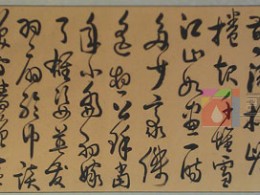 濤裂岸
捲起千堆雪
江山如畫一時
多少豪傑
遙想公瑾當
年小喬初嫁
了雄姿英發
羽扇綸巾談